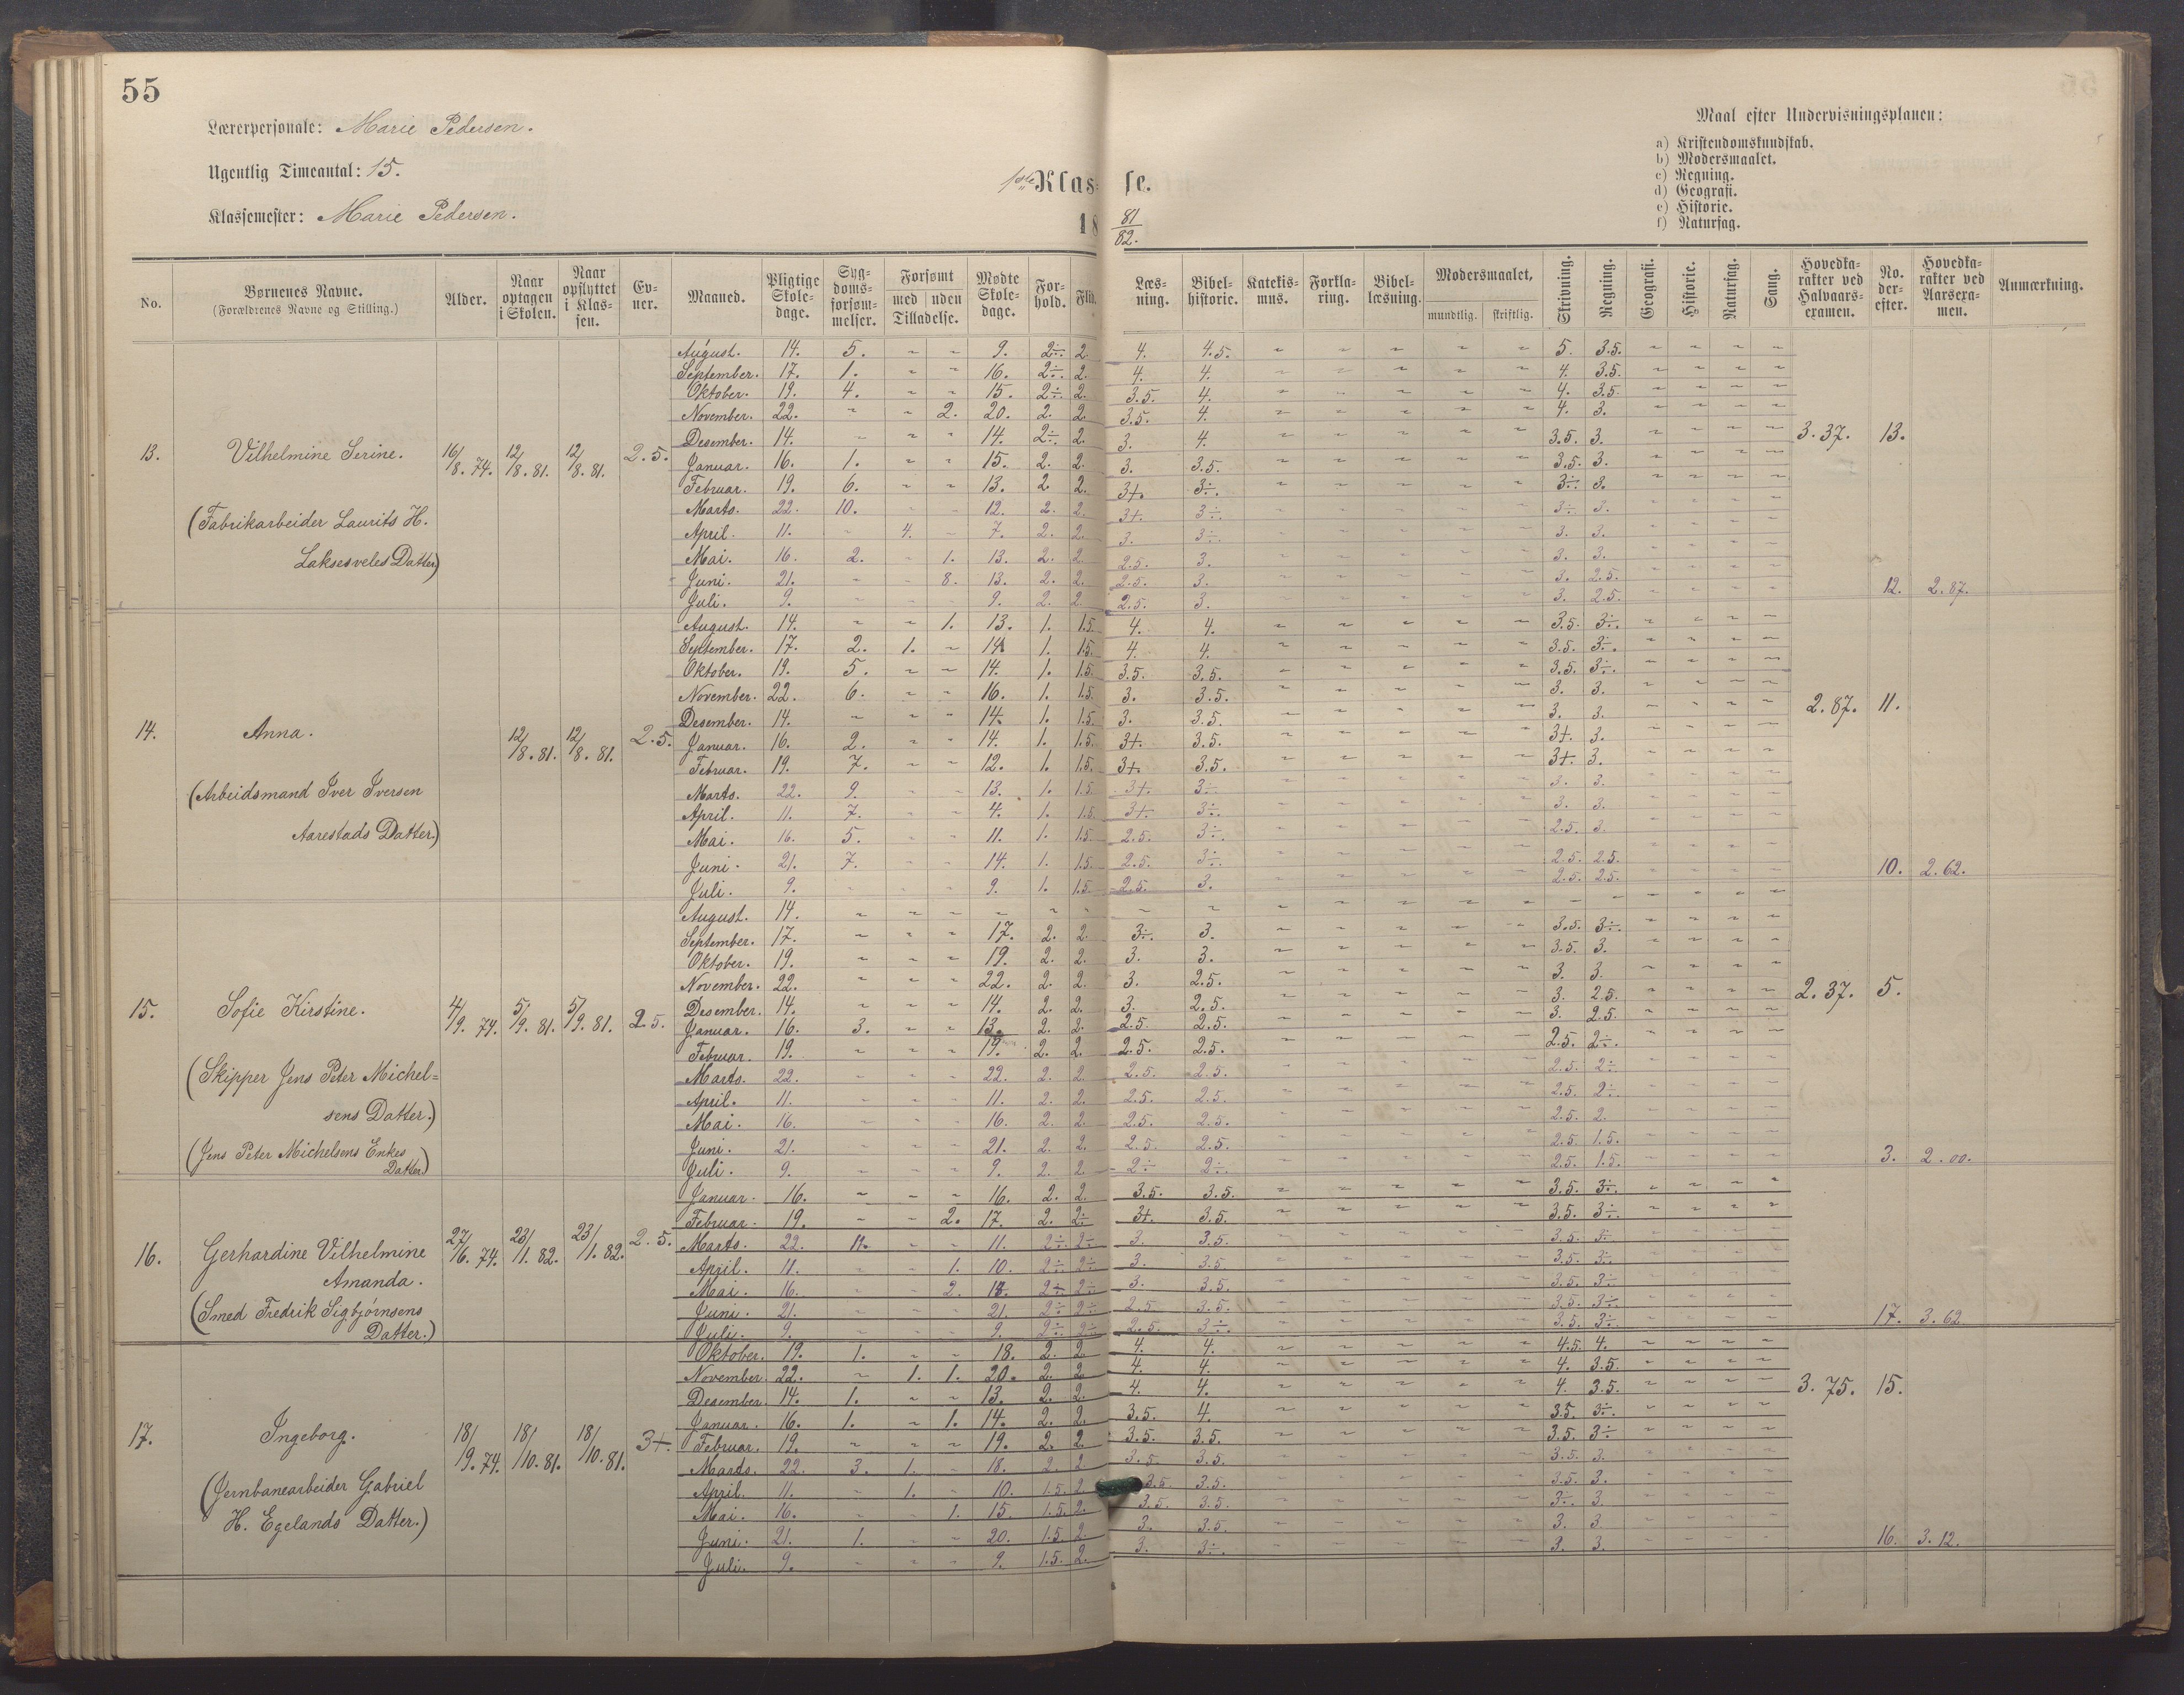 55
Lærerpersonale: Marie Pedersen.
Ugentlig Timeantal: 15.
Klassemester: Marie Pedersen.
1ste Klasse.
18 81/82.
Maal efter Undervisningsplanen:
a) Kristendomskundskab.
b) Modersmaalet.
c) Regning.
d) Geografi.
e) Historie.
f) Naturfag.
No. | Børnenes Navne. (Forældrenes Navne og Stilling.) | Alder. | Naar optagen i Skolen. | Naar opflyttet i Klassen. | Evner. | Maaned. | Pligtige Skoledage. | Sygdomsforsømmelser. | Forsømt med / uden Tilladelse. | Mødte Skoledage. | Forhold. | Flid. | Læsning. | Bibelhistorie. | Katekismus. | Forklaring. | Bibellæsning. | Modersmaalet, mundtlig. / skriftlig. | Skrivning. | Regning. | Geografi. | Historie. | Naturfag. | Sang. | Hovedkarakter ved Halvaarsexamen. | No. derefter. | Hovedkarakter ved Aarsexamen. | Anmærkning.
13. Vilhelmine Serine. 16/8. 74. 12/8. 81. 12/8. 81. 2.5.
(Fabrikarbeider Laurits H.
Laksesveles Datter)
August. 14. 5. ~ ~ 9. 2÷. 2. 4. 4.5. ~ ~ ~ ~ ~ 5. 3.5. ~ ~ ~ ~
September. 17. 1. ~ ~ 16. 2÷. 2. 4. 4. ~ ~ ~ ~ ~ 4. 3.5. ~ ~ ~ ~
Oktober. 19. 4. ~ ~ 15. 2÷. 2. 3.5. 4. ~ ~ ~ ~ ~ 4. 3.5. ~ ~ ~ ~
November. 22. ~ ~ 2. 20. 2. 2. 3.5. 4 ~ ~ ~ ~ ~ 4. 3. ~ ~ ~ ~
Desember. 14. ~ ~ ~ 14. 2÷. 2. 3. 4. ~ ~ ~ ~ ~ 3.5. 3. ~ ~ ~ ~ 3.37. 13.
Januar. 16. 1. ~ ~ 15. 2. 2. 3. 3.5. ~ ~ ~ ~ ~ 3.5. 3. ~ ~ ~ ~
Februar. 19. 6. ~ ~ 13. 2. 2. 3+. 3÷. ~ ~ ~ ~ ~ 3÷. 3. ~ ~ ~ ~
Marts. 22. 10. ~ ~ 12. 2. 2. 3+. 3÷. ~ ~ ~ ~ ~ 3÷ 3. ~ ~ ~ ~
April. 11. ~ 4. ~ 7. 2. 2. 3. 3÷. ~ ~ ~ ~ ~ 3. 3. ~ ~ ~ ~
Mai. 16. 2. ~ 1. 13. 2. 2. 2.5. 3. ~ ~ ~ ~ ~ 3. 3. ~ ~ ~ ~
Juni. 21. ~ ~ 8. 13. 2. 2. 2.5. 3. ~ ~ ~ ~ ~ 3. 2.5. ~ ~ ~ ~
Juli. 9. ~ ~ ~ 9. 2. 2. 2.5. 3. ~ ~ ~ ~ ~ 3. 2.5. ~ ~ ~ ~ 12. 2.87.
14. Anna. 12/8. 81. 12/8. 81. 2.5.
(Arbeidsmand Iver Iversen
Aarestads Datter.)
August. 14. ~ ~ 1. 13. 1. 1.5. 4. 4. ~ ~ ~ ~ ~ 3.5. 3÷. ~ ~ ~ ~
September. 17. 2. 1. ~ 14 1. 1.5. 4. 4. ~ ~ ~ ~ ~ 3.5. 3÷. ~ ~ ~ ~
Oktober. 19. 5. ~ ~ 14. 1. 1.5. 3.5. 3.5. ~ ~ ~ ~ ~ 3.5. 3÷. ~ ~ ~ ~
November. 22. 6. ~ ~ 16. 1. 1.5. 3. 3.5. ~ ~ ~ ~ ~ 3. 3. ~ ~ ~ ~
Desember. 14. ~ ~ ~ 14. 1. 1.5. 3. 3.5. ~ ~ ~ ~ ~ 3. 3. ~ ~ ~ ~ 2.87. 11.
Januar. 16. 2. ~ ~ 14. 1. 1.5. 3+. 3.5. ~ ~ ~ ~ ~ 3+. 3. ~ ~ ~ ~
Februar. 19. 7. ~ ~ 12. 1. 1.5. 3+. 3.5. ~ ~ ~ ~ ~ 3+. 3. ~ ~ ~ ~
Marts. 22. 9. ~ ~ 13. 1. 1.5 3+. 3÷ ~ ~ ~ ~ ~ 3. 3. ~ ~ ~ ~
April. 11. 7. ~ ~ 4. 1. 1.5. 3+ 3÷. ~ ~ ~ ~ ~ 3. 3. ~ ~ ~ ~
Mai. 16. 5. ~ ~ 11. 1. 1.5 2.5. 3÷. ~ ~ ~ ~ ~ 2.5. 3. ~ ~ ~ ~
Juni. 21. 7. ~ ~ 14. 1. 1.5. 2.5. 3÷. ~ ~ ~ ~ ~ 2.5. 2.5. ~ ~ ~ ~
Juli. 9. ~ ~ ~ 9. 1. 1.5 2.5. 3. ~ ~ ~ ~ ~ 2.5. 2.5. ~ ~ ~ ~ 10. 2.62.
15. Sofie Kirstine. 4/9. 74. 5/9. 81. 5/9. 81. 2.5.
(Skipper Jens Peter Michel=
sens Datter.)
(Jens Peter Michelsens Enkes
Datter)
August. 14. ~ ~ ~ ~ ~ ~ ~ ~ ~ ~ ~ ~ ~ ~ ~ ~ ~ ~ ~
September. 17. ~ ~ ~ 17. 2. 2. 3÷. 3. ~ ~ ~ ~ ~ 3.5. 3÷. ~ ~ ~ ~
Oktober. 19. ~ ~ ~ 19. 2. 2. 3. 3. ~ ~ ~ ~ ~ 3.5. 3. ~ ~ ~ ~
November. 22. ~ ~ ~ 22. 2. 2. 3. 2.5. ~ ~ ~ ~ ~ 3. 3. ~ ~ ~ ~
Desember. 14. ~ ~ ~ 14. 2. 2. 3. 2.5. ~ ~ ~ ~ ~ 3. 2.5. ~ ~ ~ ~ 2.37. 5.
Januar. 16. 3. ~ ~ 13. 2. 2. 2.5. 2.5. ~ ~ ~ ~ ~ 3. 2.5. ~ ~ ~ ~
Februar. 19. ~ ~ ~ 19. 2. 2. 2.5. 2.5. ~ ~ ~ ~ ~ 2.5. 2÷. ~ ~ ~ ~
Marts. 22. ~ ~ ~ 22. 2. 2. 2.5. 2.5. ~ ~ ~ ~ ~ 2.5. 2÷ ~ ~ ~ ~
April. 11. ~ ~ ~ 11. 2. 2. 2.5. 2.5. ~ ~ ~ ~ ~ 2.5. 2÷. ~ ~ ~ ~
Mai. 16. ~ ~ ~ 16. 2. 2. 2.5. 2.5. ~ ~ ~ ~ ~ 2.5. 2. ~ ~ ~ ~
Juni. 21. ~ ~ ~ 21. 2. 2. 2.5. 2.5. ~ ~ ~ ~ ~ 2.5. 1.5. ~ ~ ~ ~
Juli. 9. ~ ~ ~ 9. 2. 2. 2÷ 2÷. ~ ~ ~ ~ ~ 2.5. 1.5. ~ ~ ~ ~ 3. 2.00.
16. Gerhardine Vilhelmine 27/6. 74. 23/1. 82. 23/1. 82. 2.5.
Amanda.
(Smed Fredrik Sigbjørnsens
Datter.)
Januar. 16. ~ ~ ~ 16. 2. 2. 3.5. 3.5. ~ ~ ~ ~ ~ 3.5. 3÷. ~ ~ ~ ~
Februar. 19. ~ ~ 2. 17. 2. 2÷ 3+. 3.5. ~ ~ ~ ~ ~ 3.5. 3÷. ~ ~ ~ ~
Marts. 22. 11. ~ ~ 11. 2÷. 2÷ 3. 3.5. ~ ~ ~ ~ ~ 3.5. 3÷ ~ ~ ~ ~
April. 11. ~ ~ 1. 10. 2÷. 2÷ 3. 3.5. ~ ~ ~ ~ ~ 3.5. 3÷. ~ ~ ~ ~
Mai. 16. ~ ~ 2. 2÷ 2÷ 3. 3.5. ~ ~ ~ ~ ~ 3.5. 3÷. ~ ~ ~ ~
Juni. 21. ~ ~ ~ 21. 2÷ 2÷ 2.5. 3.5. ~ ~ ~ ~ ~ 3.5. 3÷. ~ ~ ~ ~
Juli. 9. ~ ~ ~ 9. 2÷. 2÷ 2.5. 3÷. ~ ~ ~ ~ ~ 3.5. 3÷. ~ ~ ~ ~ 17. 3.62
17. Ingeborg. 18/9. 74. 18/10. 81. 18/10. 81. 3+.
(Jernbanearbeider Gabriel
H. Egelands Datter.)
Oktober. 19. 1. ~ ~ 18. 2. 2. 4. 4. ~ ~ ~ ~ ~ 4.5. 4. ~ ~ ~ ~
November. 22. ~ 1. 1. 20. 2. 2 4. 4. ~ ~ ~ ~ ~ 4. 3.5. ~ ~ ~ ~
Desember. 14. 1. ~ ~ 13. 2. 2. 4. 4. ~ ~ ~ ~ ~ 4. 3.5. ~ ~ ~ ~ 3.75. 15.
Januar. 16. 1. ~ 1. 14. 2. 2. 3.5. 4. ~ ~ ~ ~ ~ 3.5. 3÷. ~ ~ ~ ~
Februar. 19. ~ ~ ~ 19. 2. 2. 3.5. 3.5. ~ ~ ~ ~ ~ 3.5. 3÷ ~ ~ ~ ~
Marts. 22. 3. 1. ~ 18. 2. 2 3.5. 3.5. ~ ~ ~ ~ ~ 3.5. 3. ~ ~ ~ ~
April. 11. ~ 1. ~ 10. 1.5. 2. 3.5. 3.5. ~ ~ ~ ~ ~ 3.5. 3. ~ ~ ~ ~
Mai. 16. ~ ~ 1. 15. 1.5. 2. 3.5. 3.5. ~ ~ ~ ~ ~ 3÷. 3. ~ ~ ~ ~
Juni. 21. 1. ~ ~ 20. 1.5. 2. 3. 3.5. ~ ~ ~ ~ ~ 3. 3. ~ ~ ~ ~
Juli. 9. ~ ~ ~ 9. 1.5. 2. 3. 3÷. ~ ~ ~ ~ ~ 3. 3. ~ ~ ~ ~ 16. 3.12.